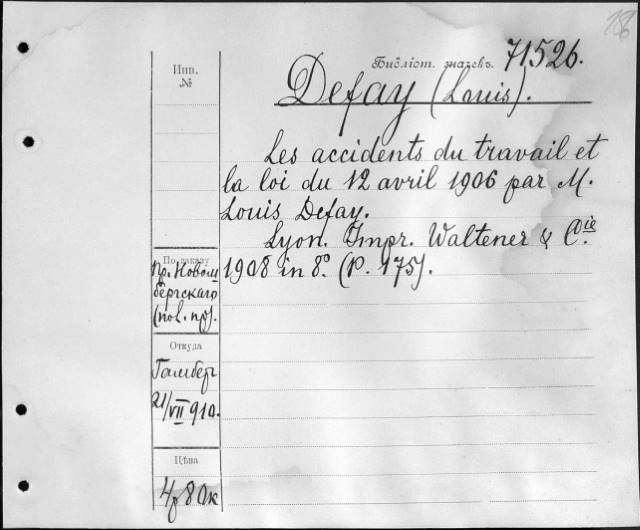 186
Библіот. значекъ. 71526.
Инв.
№
Defay (Louis).
Les accidents du travail et
la loi du 12 avril 1906 par M.
Louis Defay.
Lyon. Impr. Waltener & Cie.
1908 in 8º. (P. 175).
По заказу
пр. Новом
бергскаго
(пов. пр).
Откуда
Гамбер
21/VII 910.
Цѣна
4р 80к